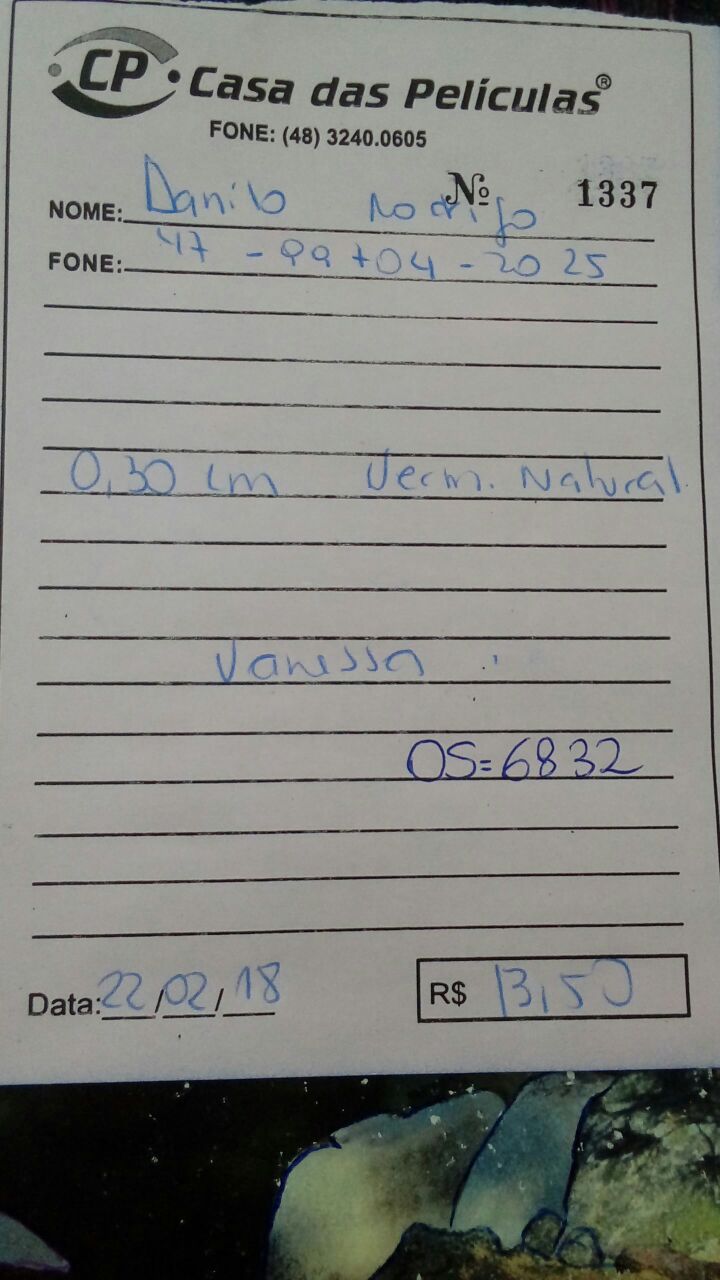 CP Casa das Películas®
FONE: (48) 3240.0605
Nº 1337
NOME: Danilo Rodrigo
FONE: 47 - 99704 - 2025
0,30 cm Verm. Natural
Vanessa
OS= 6832
Data: 22/02/18 R$ 13,50